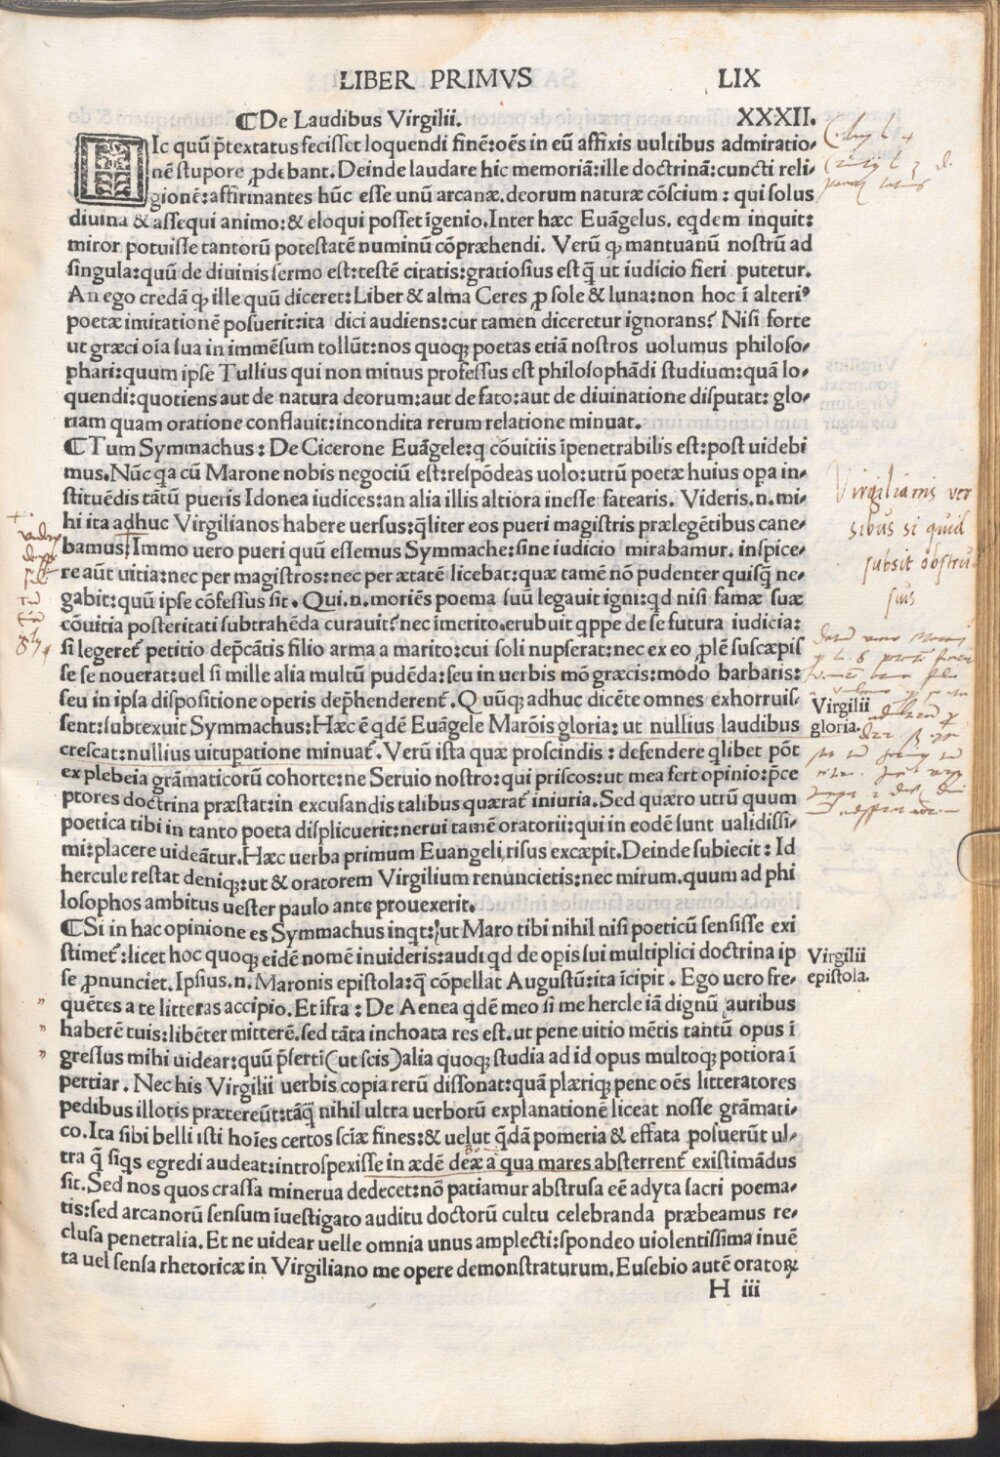 LIBER PRIMVS LIX
⸿De Laudibus Virgilii. XXXII.
HIc quũ p̃textatus fecisset loquendi finẽ:oẽs in eũ affixis uultibus admiratio-
nẽ stupore ꝓdebant.Deinde laudare hic memoriã:ille doctrinã:cuncti reli-
gionẽ:affirmantes hũc esse unũ arcanæ.deorum naturæ cõscium : qui solus
diuina & assequi animo:& eloqui posset ĩgenio.Inter hæc Euãgelus. eqdem inquit:
miror potuisse tantorũ potestatẽ numinũ cõpræhendi. Verũ ꝙ mantuanũ nostrũ ad
singula:quũ de diuinis sermo est:testẽ citatis:gratiosius est q̃ ut iudicio fieri putetur.
An ego credã ꝙ ille quũ diceret:Liber & alma Ceres ꝓ sole & luna:non hoc ĩ alteriꝰ
poetæ imitationẽ posuerit:ita dici audiens:cur tamen diceretur ignorans? Nisi forte
ut græci oĩa sua in immẽsum tollũt:nos quoqꝫ poetas etiã nostros uolumus philoso-
phari:quum ipse Tullius qui non minus professus est philosophãdi studium:quã lo-
quendi:quotiens aut de natura deorum:aut de fato:aut de diuinatione disputat: glo-
riam quam oratione conflauit:incondita rerum relatione minuat.
⸿Tum Symmachus: De Cicerone Euãgele:q cõuitiis ĩpenetrabilis est:post uidebi
mus.Nũc qa cũ Marone nobis negociũ est:respõdeas uolo:utrũ poetæ huius opa in-
stituẽdis tãtũ pueris Idonea iudices:an alia illis altiora inesse fatearis. Videris.n.mi-
hi ita adhuc Virgilianos habere uersus:q̃liter eos pueri magistris prælegẽtibus cane-
bamus.Immo uero pueri quũ essemus Symmache:sine iudicio mirabamur. inspice-
re aũt uitia:nec per magistros:nec per ætatẽ licebat:quæ tamẽ nõ pudenter quisq̃ ne-
gabit:quũ ipse cõfessus sit. Qui.n.moriẽs poema suũ legauit igni:qd nisi famæ suæ
cõuitia posteritati subtrahẽda curauit? nec imerito.erubuit qppe de se futura iudicia:
si legeret᷑ petitio dep̃cãtis filio arma a marito:cui soli nupserat:nec ex eo ꝓlẽ suscæpis
se se nouerat:uel si mille alia multũ pudẽda:seu in uerbis mõ græcis:modo barbaris:
seu in ipsa dispositione operis dep̃henderent᷑.Q uũqꝫ adhuc dicẽte omnes exhorruis-
sent:subtexuit Symmachus:Hæc ẽ qdẽ Euãgele Marõis gloria: ut nullius laudibus
crescat:nullius uituꝑatione minuat᷑. Verũ ista quæ proscindis : defendere qlibet põt
ex plebeia grãmaticorũ cohorte:ne Seruio nostro:qui priscos:ut mea fert opinio:p̃ce
ptores doctrina præstat:in excusandis talibus quærat᷑ iniuria. Sed quæro utrũ quum
poetica tibi in tanto poeta displicuerit:nerui tamẽ oratorii:qui in eodẽ sunt ualidissi-
mi:placere uideãtur.Hæc uerba primum Euangeli risus excæpit.Deinde subiecit : Id
hercule restat deniqꝫ:ut & oratorem Virgilium renuncietis:nec mirum.quum ad phi
losophos ambitus uester paulo ante prouexerit.
⸿Si in hac opinione es Symmachus inqt:ut Maro tibi nihil nisi poeticũ sensisse exi
stimet᷑:licet hoc quoqꝫ eidẽ nomẽ inuideris:audi qd de opis sui multiplici doctrina ip
se ꝓnunciet.Ipsius.n. Maronis epistola:q̃ cõpellat Augustũ:ita ĩcipit . Ego uero fre-
quẽtes a te litteras accipio. Et ĩfra : De Aenea qdẽ meo si me hercle iã dignũ auribus
haberẽ tuis:libẽter mitterẽ.sed tãta inchoata res est.ut pene uitio mẽtis tantũ opus ĩ
gressus mihi uidear:quũ p̃serti(ut scis)alia quoqꝫ studia ad id opus multoqꝫ potiora ĩ
pertiar . Nec his Virgilii uerbis copia rerũ dissonat:quã plæriqꝫ pene oẽs litteratores
pedibus illotis prætereũt:tãq̃ nihil ultra uerborũ explanationẽ liceat nosse grãmati-
co.Ita sibi belli isti hoĩes certos sciæ fines:& uelut q̃dã pomeria & effata posuerũt ul-
tra q̃ siqs egredi audeat:introspexisse in ædẽ deæ a qua mares absterrent᷑ existimãdus
sit.Sed nos quos crassa minerua dedecet:nõ patiamur abstrusa eẽ adyta sacri poema-
tis:sed arcanorũ sensum ĩuestigato auditu doctorũ cultu celebranda præbeamus re-
clusa penetralia.Et ne uidear uelle omnia unus amplecti:spondeo uiolentissima inuẽ
ta uel sensa rhetoricæ in Virgiliano me opere demonstraturum.Eusebio autẽ oratoꝝ
H iii
Virgilianis ver
sibus si quid
subsit
Virgilii
gloria.
Virgilii
epistola.